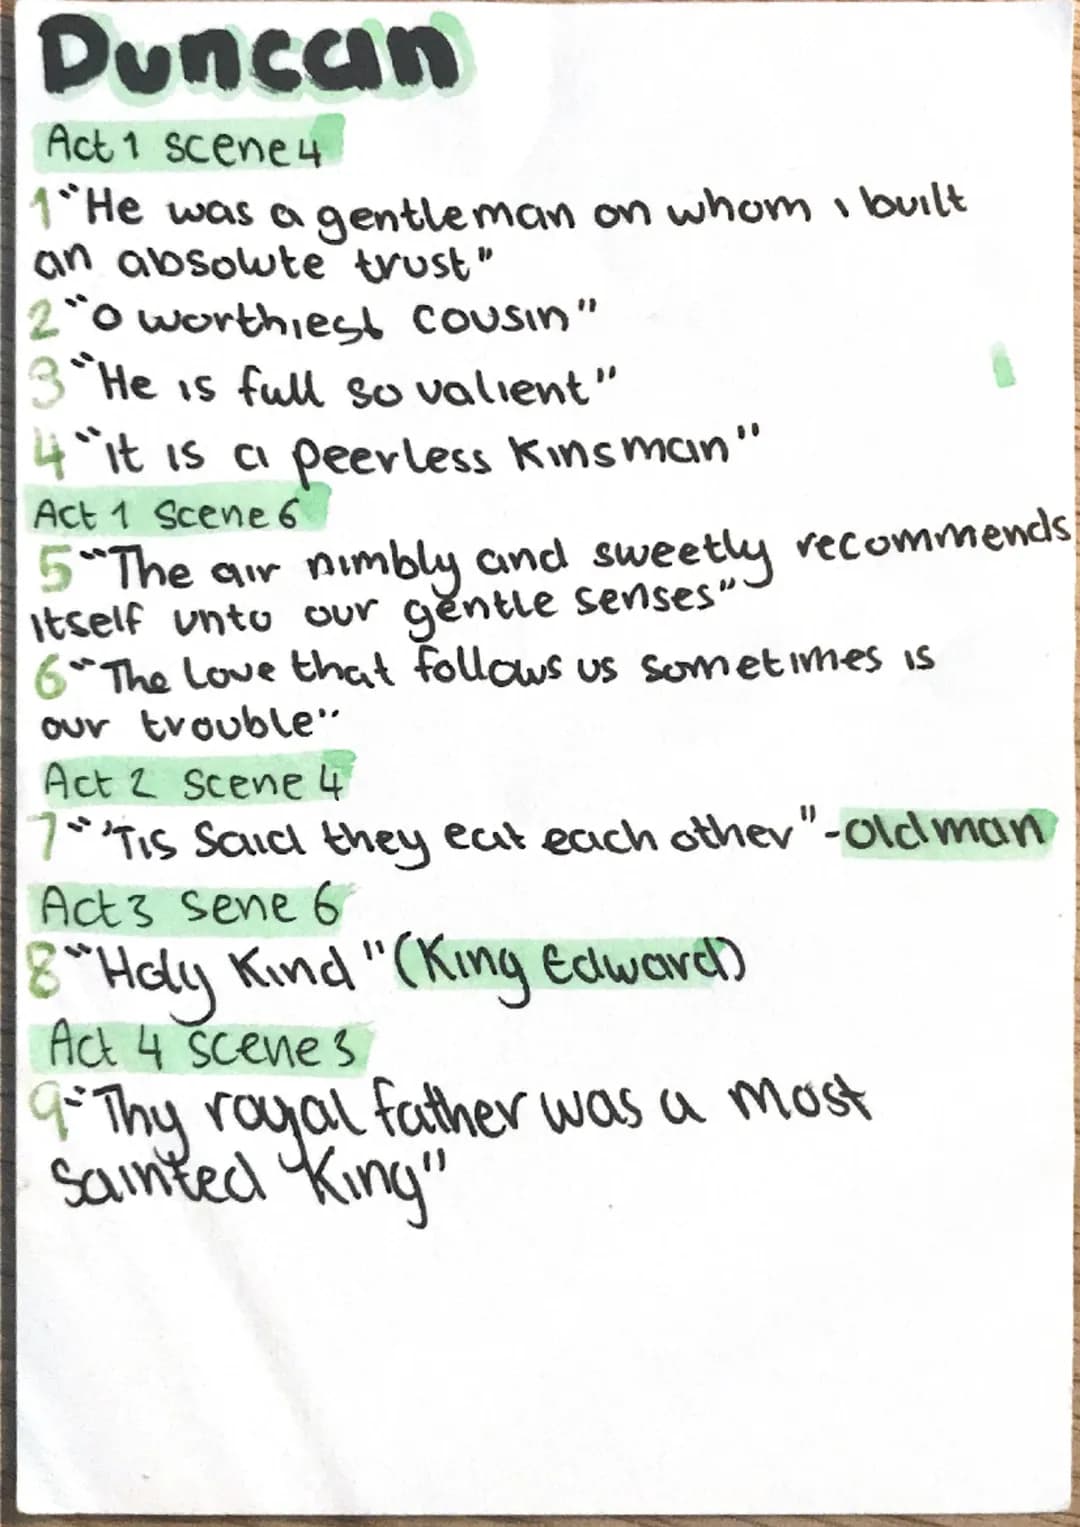 Duncan
Act 1 scene 4
1 "He was a gentleman on whom i built
an absolute trust"
2 "O worthiest cousin"
3 "He is full so valient"
4 "it is a peerless Kinsman"
Act 1 Scene 6
5 "The air nimbly and sweetly recommends
itself unto our gentle senses"
6 "The love that follows us sometimes is
our trouble"
Act 2 Scene 4
7 "'Tis Said they eat each other" - old man
Act 3 sene 6
8 "Holy Kind" (King Edward)
Act 4 scene 3
9 "Thy royal father was a most
Sainted King"